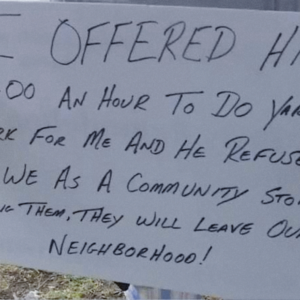 I OFFERED HI
.00 AN HOUR TO DO YAR
RK FOR ME AND HE REFUSE
WE AS A COMMUNITY STO
NG THEM, THEY WILL LEAVE OU
NEIGHBORHOOD!